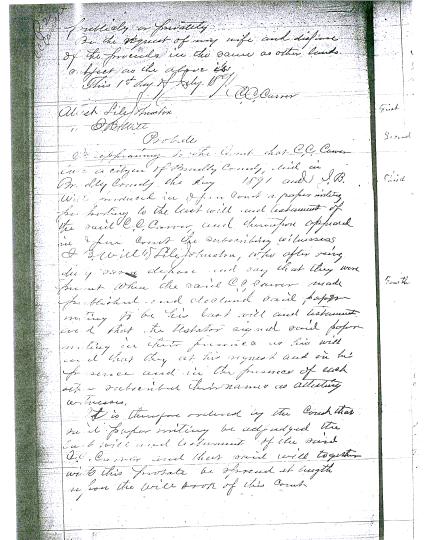 publicly or privately
on the request of my wife and dispose
of the proceeds in the same as other lands
This 1st day of July 18
C.C. Carver
Attest Lile Johnston
Probate
It appearing to the Court that C.C. Carver
was a citizen of Bradley County, died in
Bradley County the day 1891 and J.B.
Will produced in open Court a paper writing
purporting to be the last will and testament of
the said C.C. Carver, and thereupon appeared
in open Court the subscribing witnesses
J B Will & Lile Johnston, who after being
duly sworn depose and say that they were
present when the said C.C. Carver made
published and declared said paper
writing to be his last will and testament
and that the testator signed said paper
writing in their presence as his will
and that they at his request and in his
presence and in the presence of each
other subscribed their names as attesting
witnesses.
It is therefore ordered by the Court that
said paper writing be adjudged the
last will and testament of the said
C.C. Carver and that said will together
with this probate be spread at length
upon the Will Book of this Court
First
Second
Third
Fourth